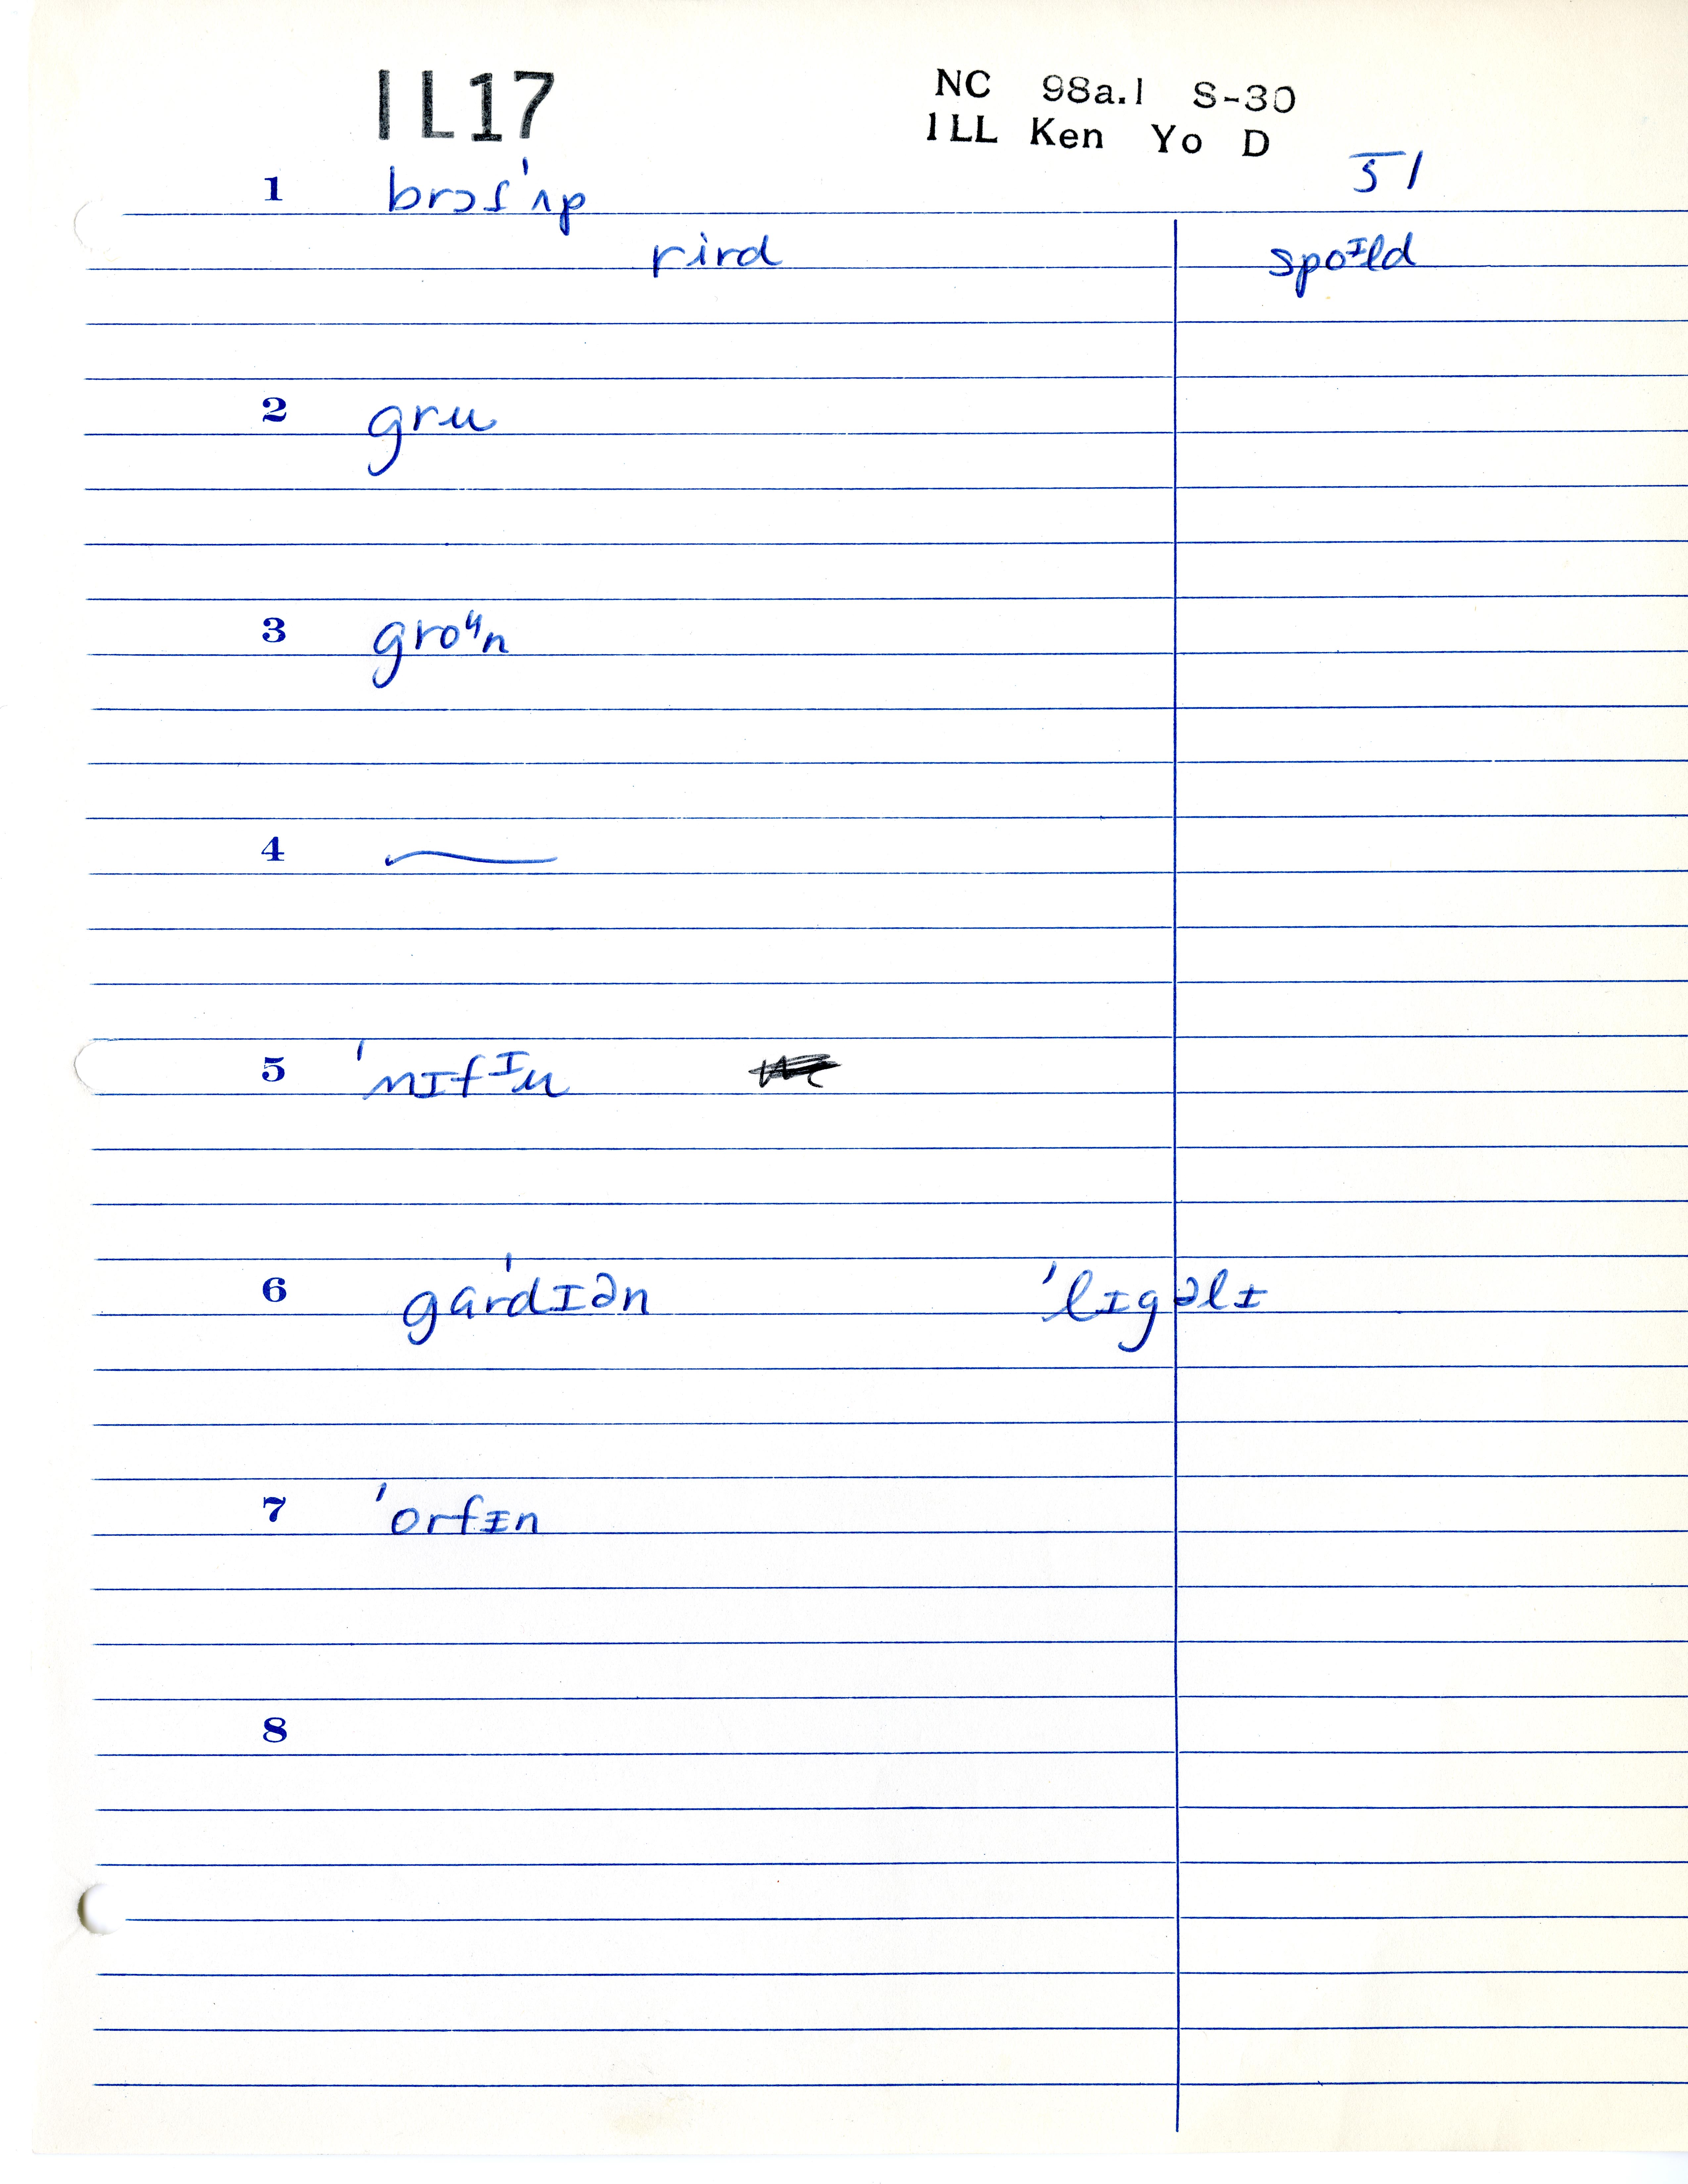 IL17
NC 98a.1 S-30
ILL Ken Yo D
51
1 brɔʃ'ʌp
rird spoᶦld
2 gru
3 groᶣn
4
5 'nɪfᶦu
6 gɑ'rdɪən 'lɪgəlɪ
7 'orfɪn
8